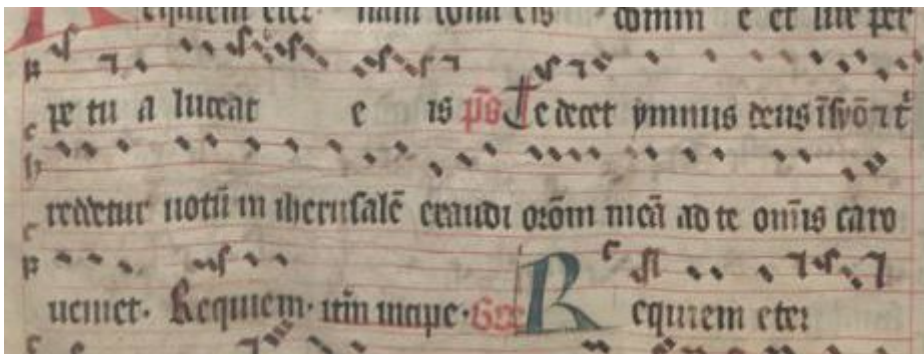 Requiem eter nam dona eis domin e et lux per
pe tu a luceat e is p̄s Te decet ymnus deus ī syōn ⁊ t͛
reddetur uotū in iherusalē exaudi orōm meā ad te om̄is caro
ueniet. Requiem. itm̄ incipe. R equiem eter